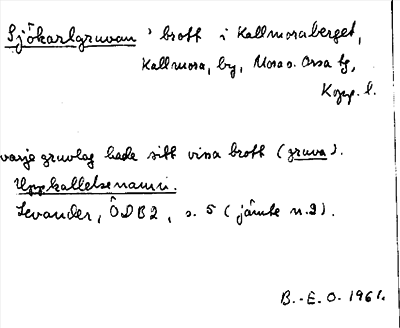 Sjökarlgruvan, brott i Kallmoraberget,
Kallmora, by, Mora o. Orsa tg,
Kopp. l.
varje gruvlag hade sitt vissa brott (gruva).
Uppkallelsenamn.
Levander, ÖDB2, s. 5 (jämte n. 2).
B.-E. O. 1961.